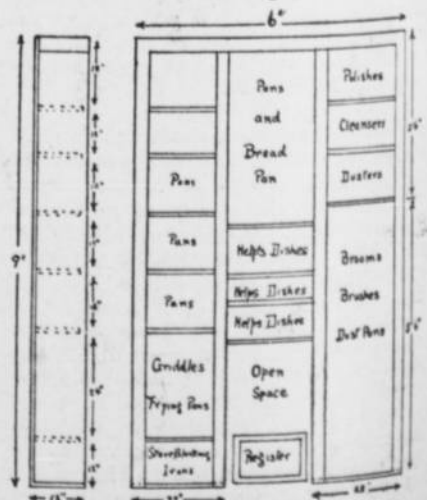 6"
9"
Pans
Pans
Pans
Griddles
Frying Pans
Stove Blacking
Irons
Pans
and
Bread
Pan
Helps Dishes
Helps Dishes
Helps Dishes
Open
Space
Register
Polishes
Cleansers
Dusters
Brooms
Brushes
Dust Pans